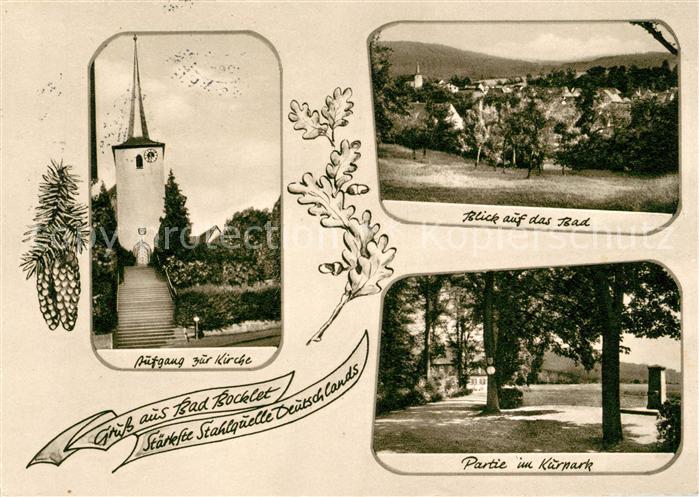 Aufgang zur Kirche
Blick auf das Bad
Gruß aus Bad Bocklet
Stärkste Stahlquelle Deutschlands
Partie im Kurpark